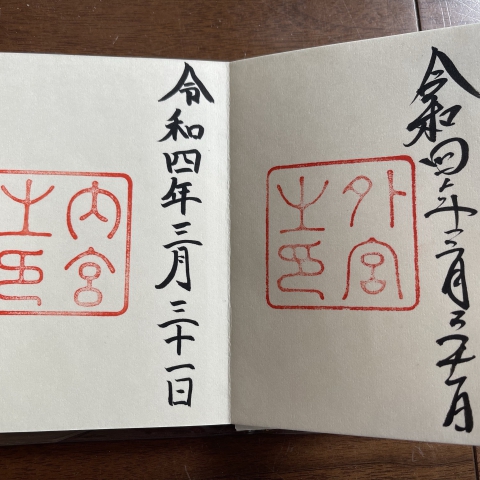 令和四年三月三十一日
外宮
之印
令和四年三月三十一日
内宮
之印